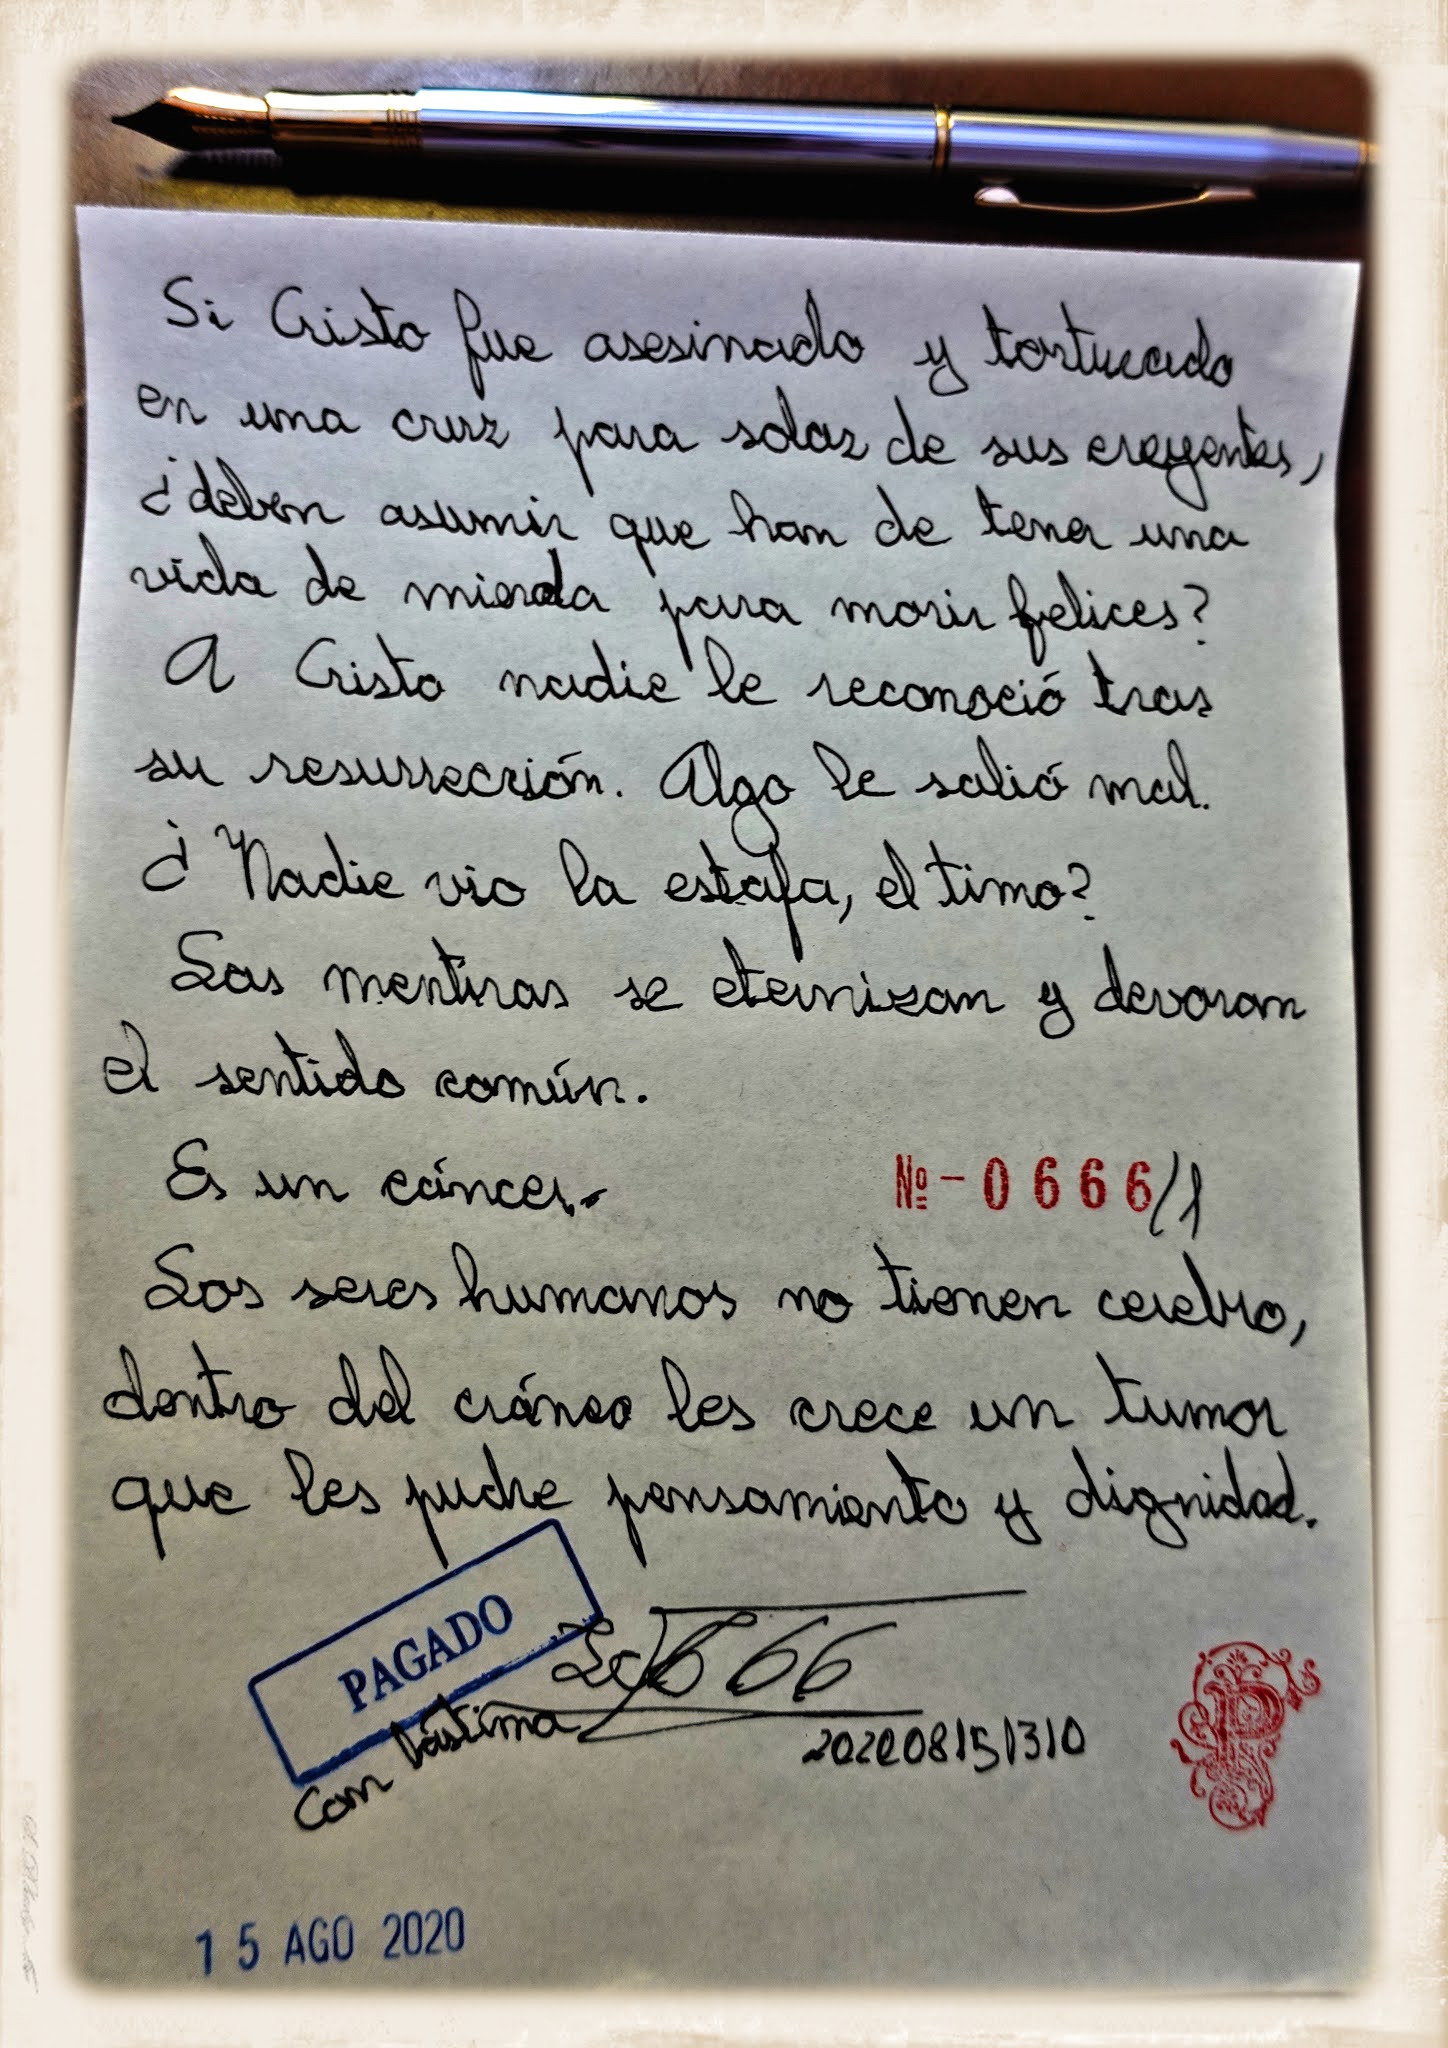 Si Cristo fue asesinado y torturado
en una cruz para solaz de sus creyentes,
¿deben asumir que han de tener una
vida de mierda para morir felices?
A Cristo nadie le reconoció tras
su resurrección. Algo le salió mal.
¿Nadie vio la estafa, el timo?
Las mentiras se eternizan y devoran
el sentido común.
Es un cáncer.
Nº - 0666/1
Los seres humanos no tienen cerebro,
dentro del cráneo les crece un tumor
que les pudre pensamiento y dignidad.
PAGADO
Con lástima
666
202008151310
P
15 AGO 2020